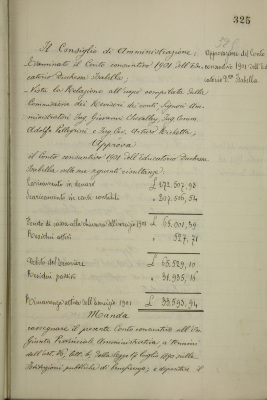 325
Il Consiglio di Amministrazione;
Esaminato il Conto consuntivo 1901 dell'Edu-
catorio Duchessa Isabella;
Vista la Relazione all'uopo compilata dalla
Commissione dei Revisori dei conti, Signori Am-
ministratori Ing. Giovanni Chevalley, Ing. Comm.
Adolfo Pellegrini e Ing. Cav.
Approva
il Conto consuntivo 1901 dell'Educatorio Duchessa
Isabella colle seguenti risultanze:
Caricamento in denari £ 272.507,98
Scaricamento in conto contabile " 207.506,54
Fondo di cassa alla chiusura dell'esercizio 1901 £ 65.001,39
Residui attivi " 527,71
Attivo £ 65.529,10
Residui passivi " 31.935,16
Rimanenza attiva dell'esercizio 1901 £ 33.593,94
Manda
rassegnare il presente Conto consuntivo all'On.
Giunta Provinciale Amministrativa, a termini
dell'art. 36, lett. b, della legge 17 luglio 1890 sulle
Istituzioni pubbliche di beneficenza; e dispositiva il
Approvazione del Conto
consuntivo 1901 dell'Edu-
catorio D.ssa Isabella